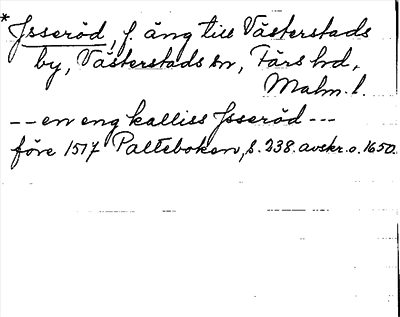 * Isseröd, f. äng till Västerstads
by, Västerstads sn, Färs hd,
Malm. l.
-- en eng kalliss Jsseröd ---
före 1517 Palteboken, s. 238. avskr. o. 1650.